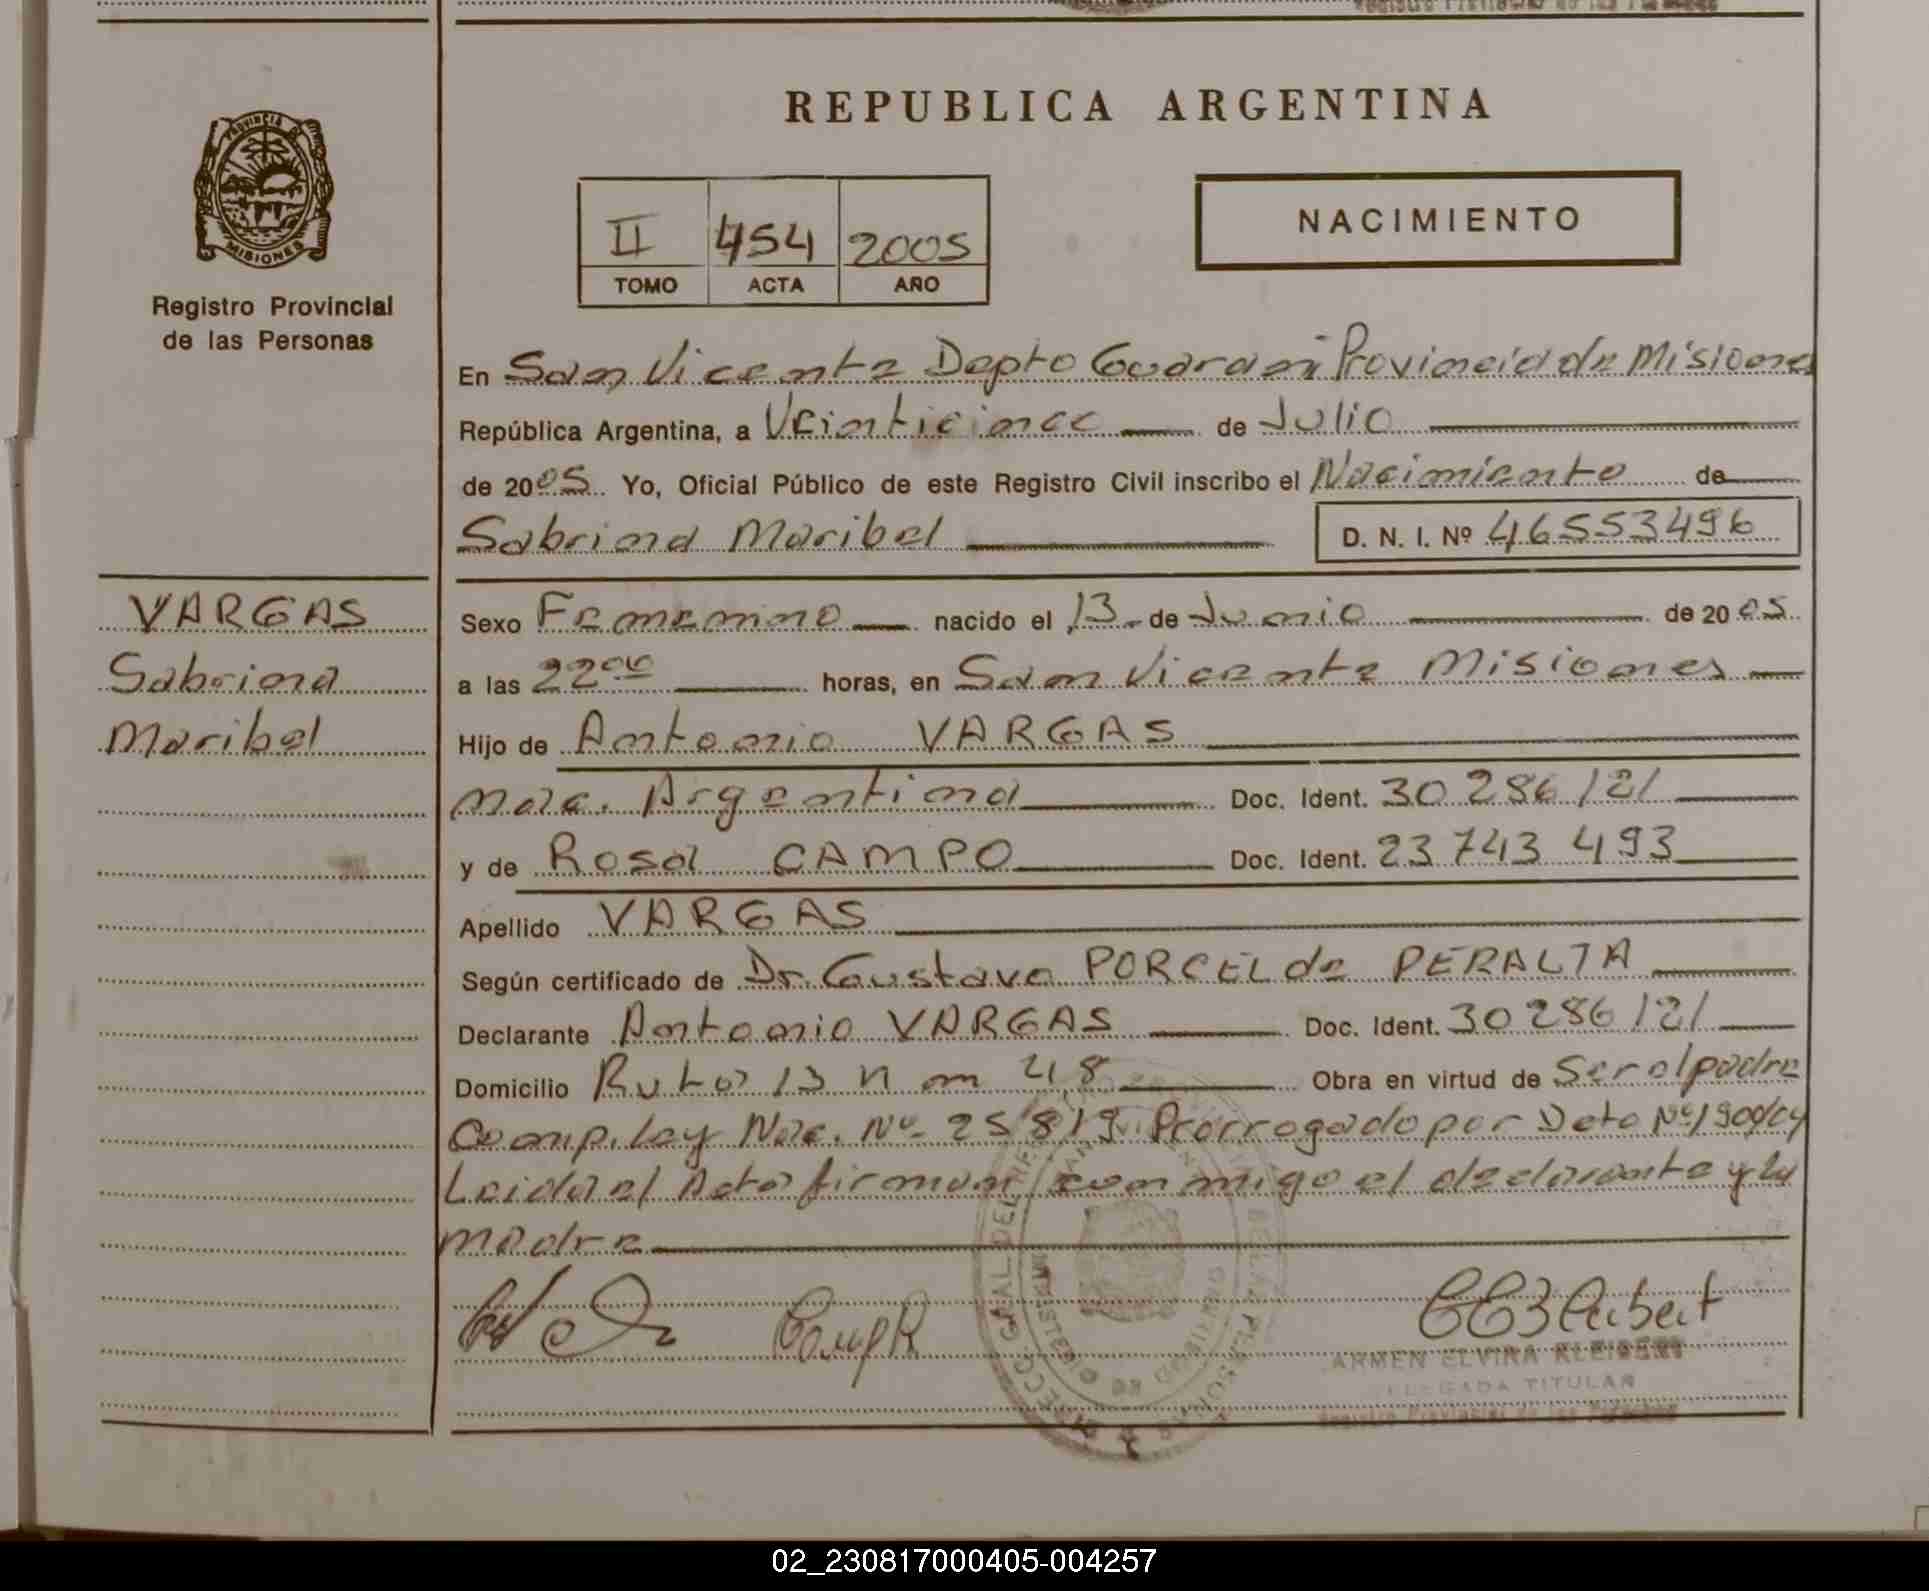 REPUBLICA ARGENTINA
PROVINCIA DE
MISIONES
Registro Provincial
de las Personas
II 454 2005
TOMO ACTA AÑO
NACIMIENTO
En San Vicente Depto Guarani Provincia de Misiones
República Argentina, a Veinticinco de Julio
de 2005. Yo, Oficial Público de este Registro Civil inscribo el Nacimiento de
Sabrina Maribel D. N. I. Nº 46553496
VARGAS
Sabrina
Maribel
Sexo Femenino nacido el 13 de Junio de 2005
a las 22 00 horas, en San Vicente Misiones
Hijo de Antonio VARGAS
nac. Argentina Doc. Ident. 30 286 121
y de Rosa CAMPO Doc. Ident. 23 743 493
Apellido VARGAS
Según certificado de Dr. Gustavo PORCEL de PERALTA
Declarante Antonio VARGAS Doc. Ident. 30 286 121
Domicilio Ruta 13 Obra en virtud de Ser el padre
Comp. Ley Nac. Nº 25819 Prorrogado por Dcto Nº
Leida el Acta firman conmigo el declarante y la
madre
ARMEN ELVIRA KLEIBERT
DELEGADA TITULAR
Registro Provincial de las Personas
02_230817000405-004257